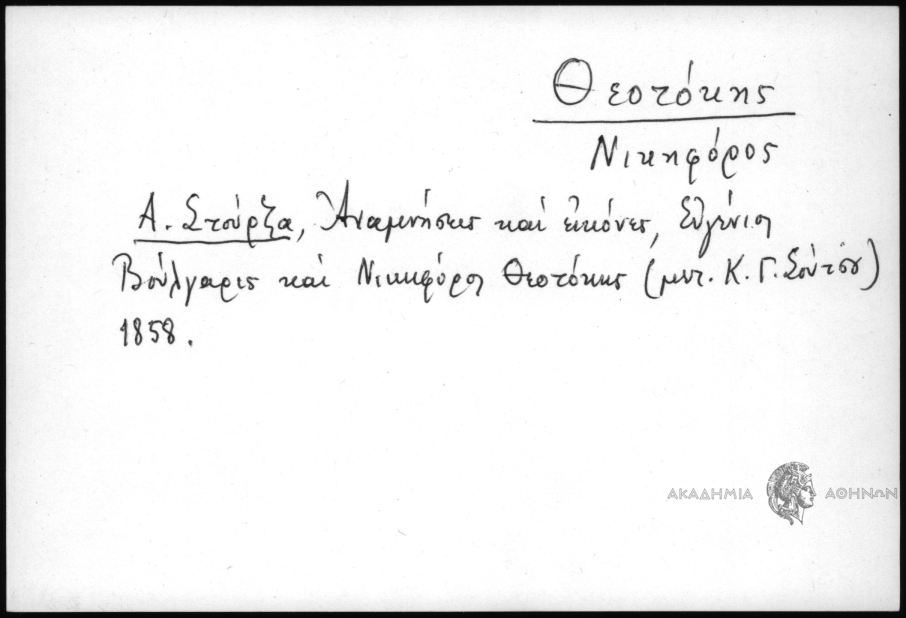 Θεοτόκης
Νικηφόρος
Α. Στούρζα, Ἀναμνήσεις καὶ εἰκόνες, Εὐγένιος
Βούλγαρις καὶ Νικηφόρος Θεοτόκης (μετ. Κ. Γ. Σούτσου)
1858.
ΑΚΑΔΗΜΙΑ ΑΘΗΝΩΝ